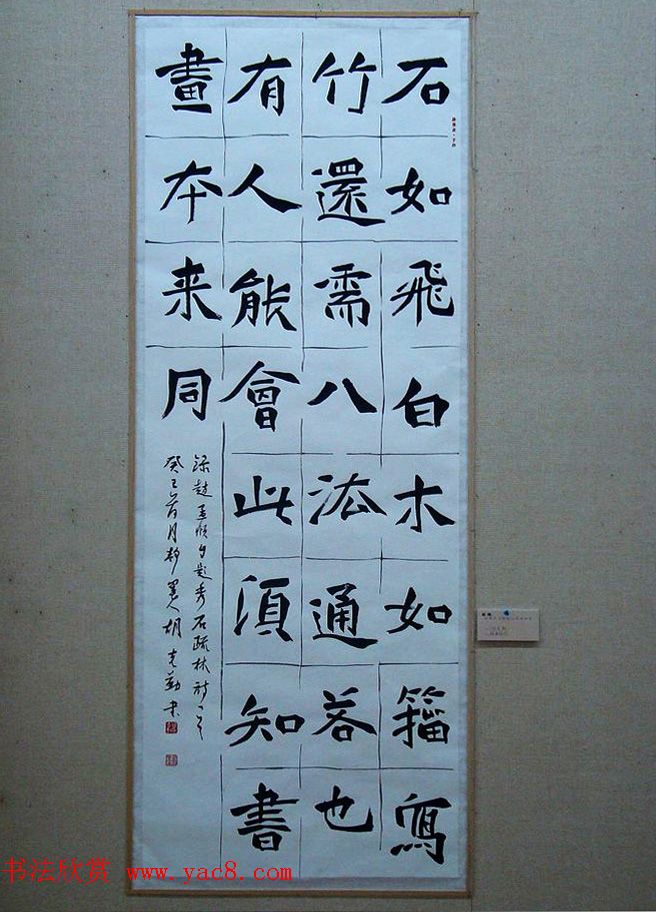 石如飛白木如籀寫
竹還需八法通若也
有人能會此須知書
畫本来同
錄趙孟頫句題秀石疏林詩一首
癸巳月静人胡克勤書
书法欣赏 www.yac8.com